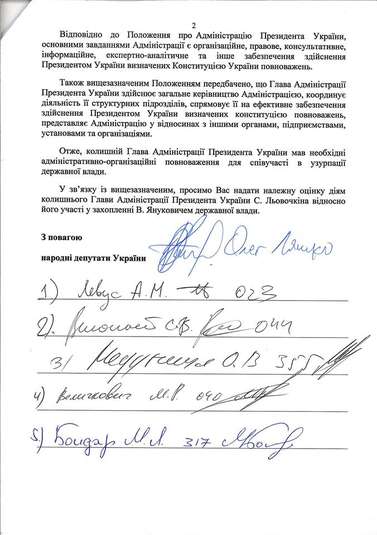 2
Відповідно до Положення про Адміністрацію Президента України,
основними завданнями Адміністрації є організаційне, правове, консультативне,
інформаційне, експертно-аналітичне та інше забезпечення здійснення
Президентом України визначених Конституцією України повноважень.
Також вищезазначеним Положенням передбачено, що Глава Адміністрації
Президента України здійснює загальне керівництво Адміністрацією, координує
діяльність її структурних підрозділів, спрямовує її на ефективне забезпечення
здійснення Президентом України визначених конституцією повноважень,
представляє Адміністрацію у відносинах з іншими органами, підприємствами,
установами та організаціями.
Отже, колишній Глава Адміністрації Президента України мав необхідні
адміністративно-організаційні повноваження для співучасті в узурпації
державної влади.
У зв'язку із вищезазначеним, просимо Вас надати належну оцінку діям
колишнього Глави Адміністрації Президента України С. Льовочкіна відносно
його участі у захопленні В. Януковичем державної влади.
З повагою
Олег Ляшко
народні депутати України
1) Левус А.М. 023
2). 044
3) О.В 355
4) Величкович М.Р. 040
5) Бондар М.Л. 317